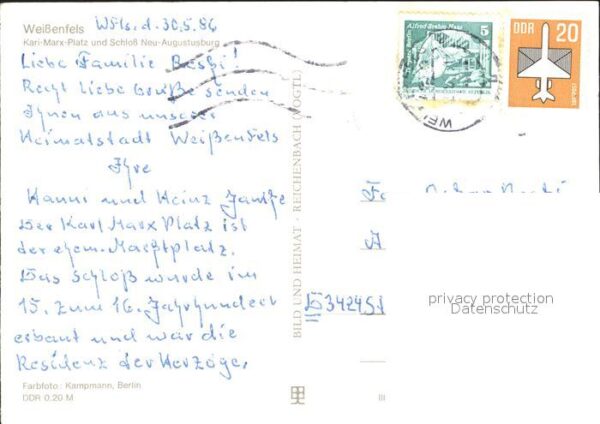 Weißenfels
Wfls. d. 30.5.86
Karl-Marx-Platz und Schloß Neu-Augustusburg
Liebe Familie
Recht liebe Grüße senden
Ihnen aus unserer
Heimatstadt Weißenfels
Ihre
Hanni und Heinz
Der Karl Marx Platz ist
der ehem. Marktplatz.
Das Schloß wurde im
15. zum 16. Jahrhundert
erbaut und war die
Residenz der Herzöge.
Farbfoto: Kampmann, Berlin
DDR 0.20 M
BILD UND HEIMAT · REICHENBACH (VOGTL)
5
Alfred-Brehm-Haus
DDR 20
Fa
A
34245
privacy protection
Datenschutz
III